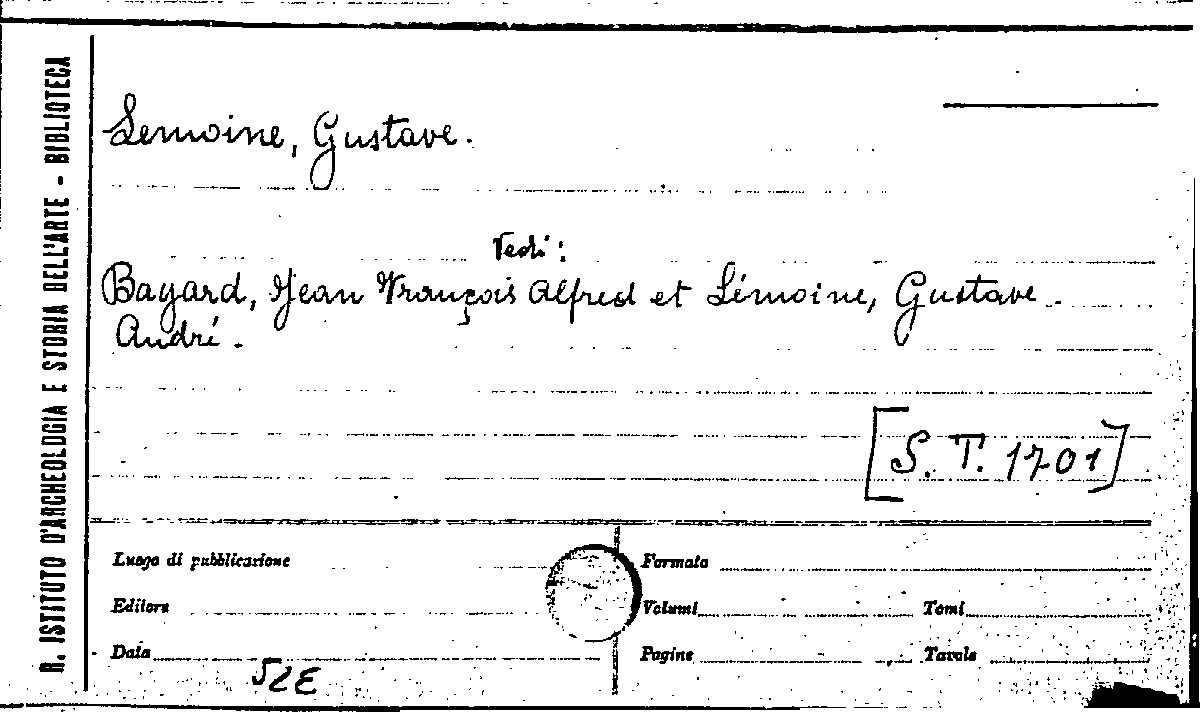 R. ISTITUTO D'ARCHEOLOGIA E STORIA DELL'ARTE - BIBLIOTECA
Lemoine, Gustave.
Vedi:
Bayard, Jean François Alfred et Lémoine, Gustave.
André.
[S. T. 1701]
Luogo di pubblicazione
Formato
Editore
Volumi
Tomi
Data
Pagine
Tavole